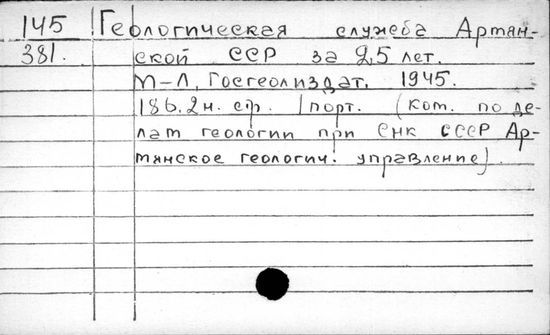 145 Геологическая служба Артян-
381. ской ССР за 25 лет.
М-Л, Госгеолиздат, 1945.
186.2н. с.р. 1 порт. (Ком. по де-
лам геологии при СНК СССР Ар-
тянское геологич. управление).